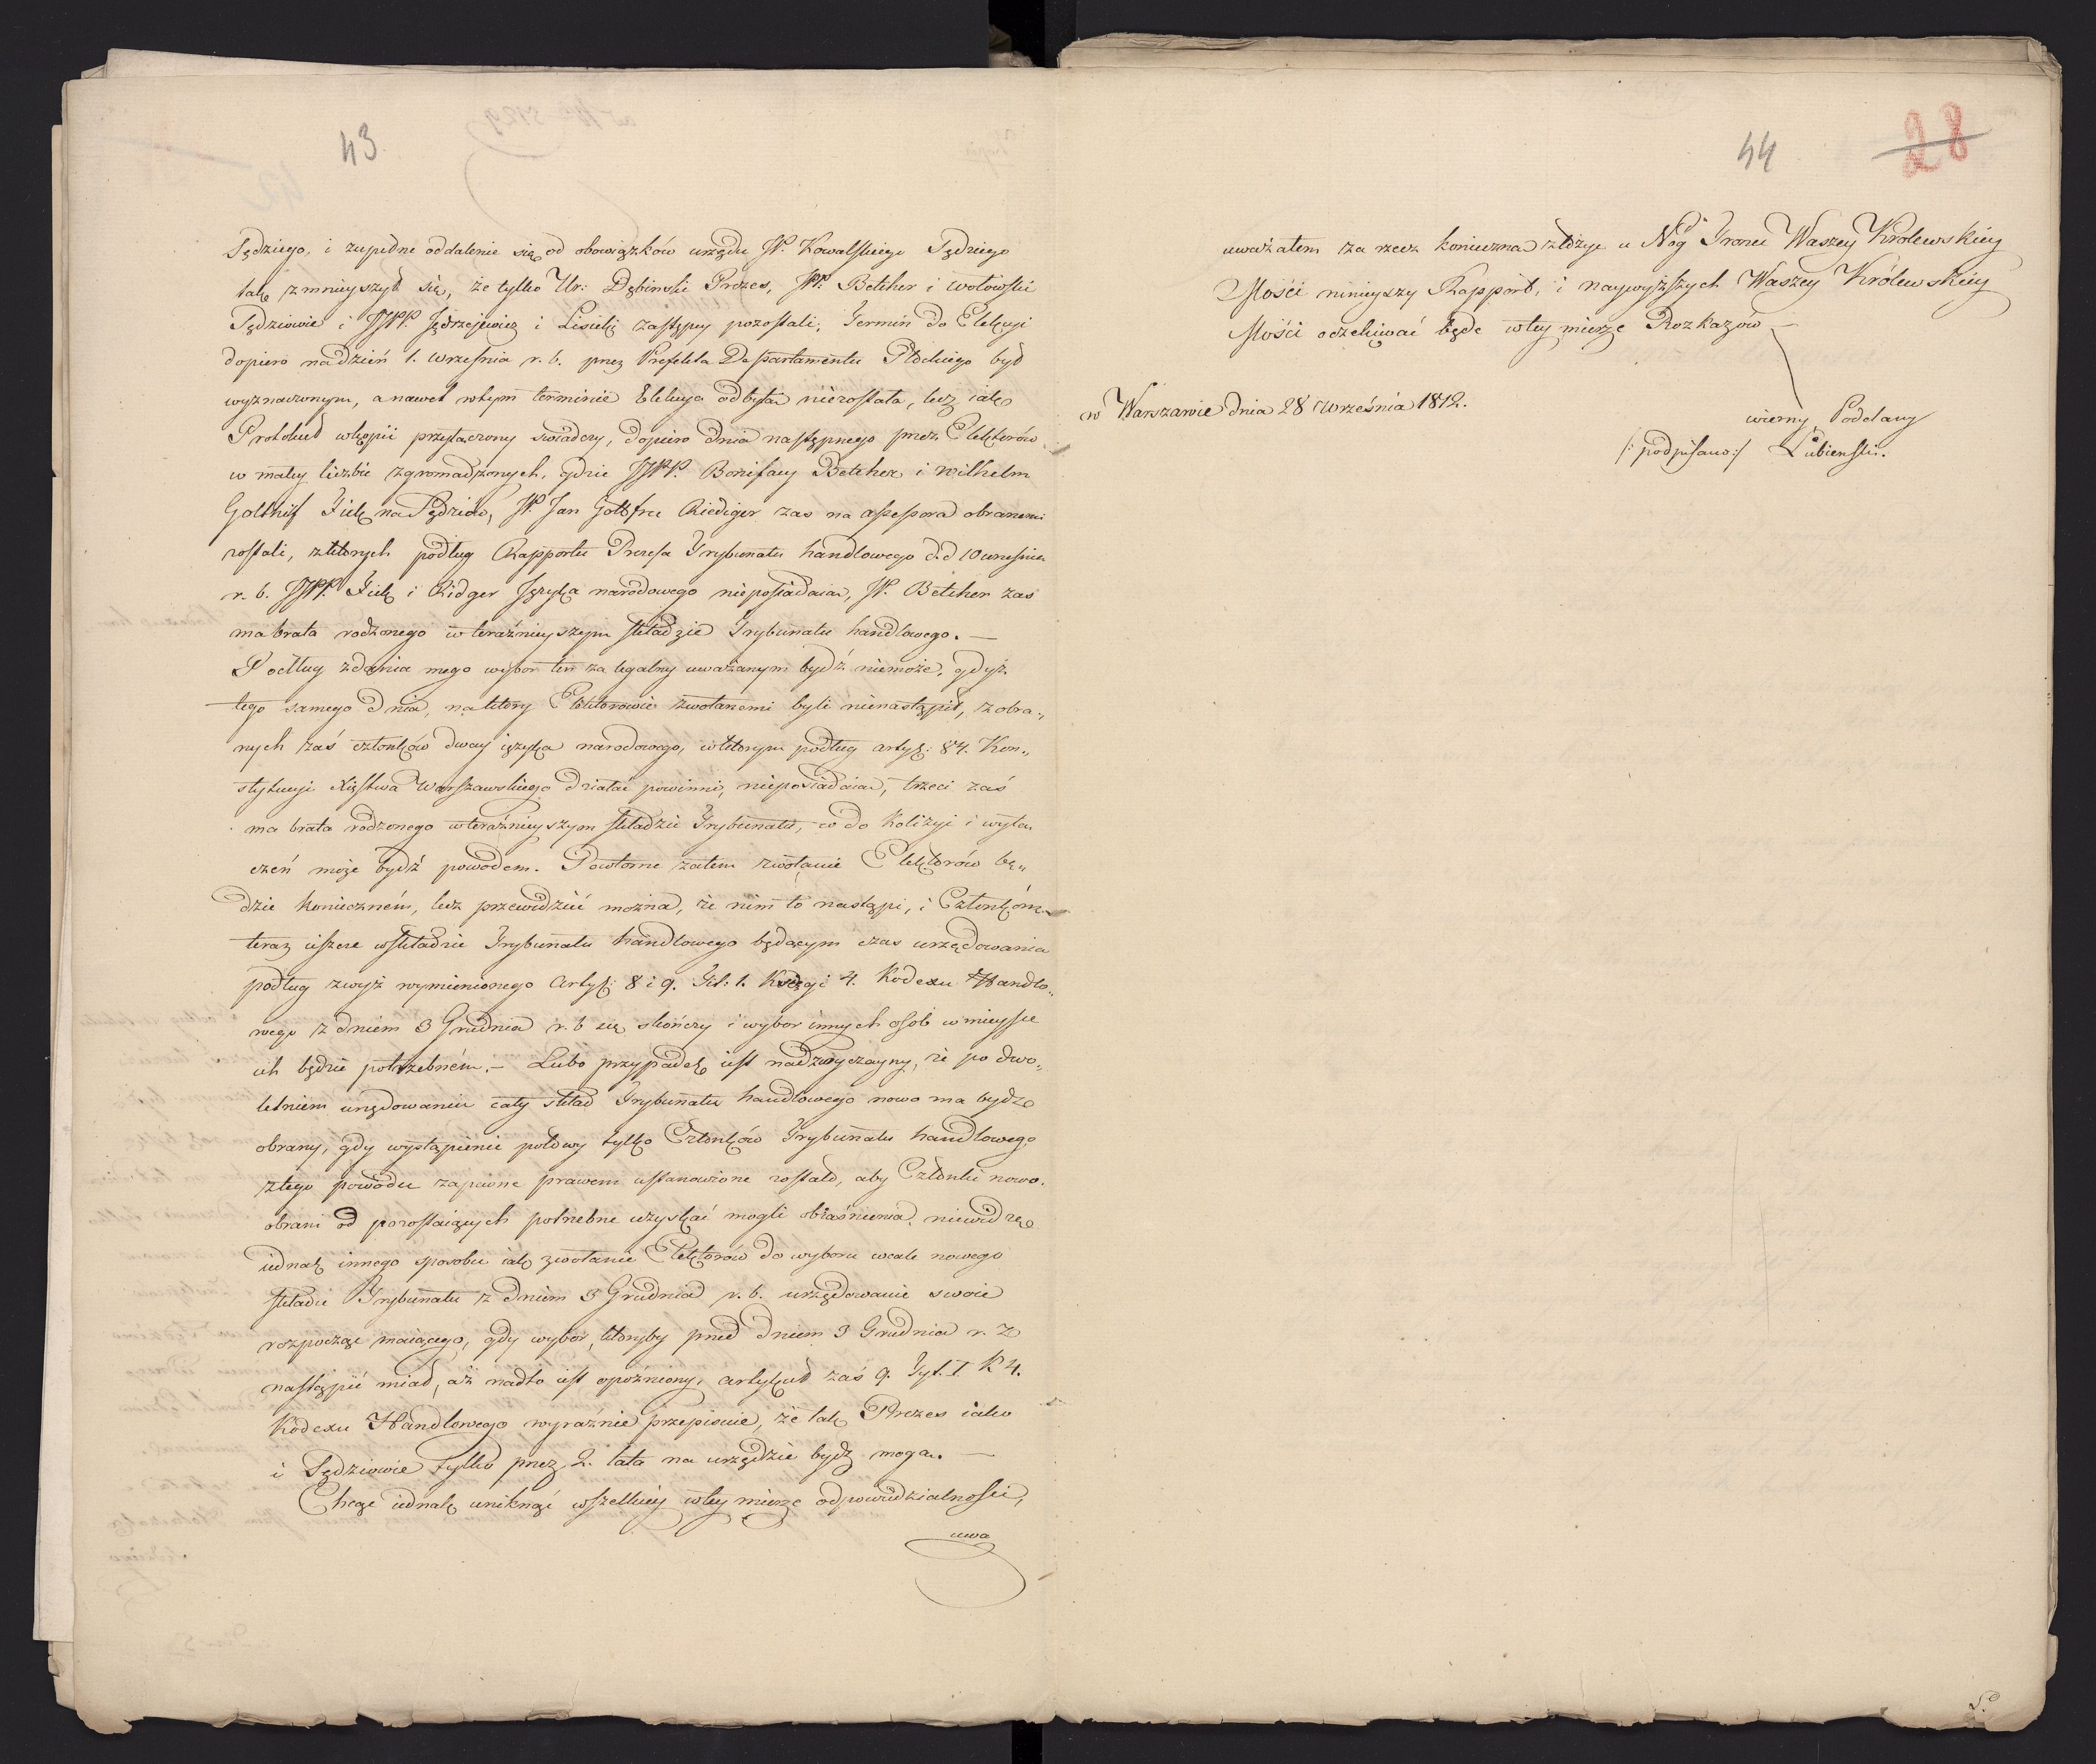 43
Sędziego, i zupełne oddalenie się od obowiązków urzędu JP. Kowalskiego Sędziego
tak zmnieyszył się, że tylko Ur: Dębinski Prezes, JPP. Betcher i Wołowski
Sędziowie i JJPP. Jędrzejewicz i Lisiecki zastępcy pozostali, Termin do Elekcyi
dopiero na dzień 1. Września r. b. przez Prefekta Departamentu Płockiego był
wyznaczonym, a nawet w tym terminie Elekcya odbyta niezostała, lecz iak
Protokuł w kopii przyłączony świadczy, dopiero dnia następnego przez Elektorów
w małey liczbie zgromadzonych, gdzie JJPP. Bonifacy Betcher i Wilhelm
Golthilf Fiek na Sędziów, JP. Jan Gottfred Riediger zas na assessora obranemi
zostali, z których podług Rapportu Prezesa Trybunału handlowego d.d 10 wrzesnia
r. b. JJPP. Fiek i Ridger Języka narodowego nieposiadaia, JP. Betcher zas
ma brata rodzonego w teraźnieyszym składzie Trybunału handlowego. —
Podług zdania mego wybor ten za legalny uważanym bydź niemoże, gdyż
tego samego dnia, na który Elektorowie zwołanemi byli nienastąpił, z obra„
nych zaś członków dway ięzyka narodowego, w którym podług artyk: 84. Kon„
stytucyi Xięstwa Warszawskiego działać powinni, nieposiadaia, trzeci zaś
ma brata rodzonego w teraźnieyszym składzie Trybunału, co do Kolizyi i wyła
czeń może bydź powodem. Powtorne zatem zwołanie Elektorów bę„
dzie koniecznem, lecz przewidzieć można, że nim to nastąpi, i Członkóm
teraz ieszcze w składzie Trybunału handlowego będącym czas urzędowania
podług zwyż wymienionego Artyk: 8 i 9. Tit: 1. Księgi 4. Kodexu Handlo„
wego z dniem 3 Grudnia r. b się skończy i wybor innych osób w mieysce
ich będzie potrzebném. — Lubo przypadek iest nadzwyczayny, że po dwo„
letniem urzędowaniu cały skład Trybunału handlowego nowo ma bydź
obrany, gdy wystąpienie połowy tylko Członków Trybunału handlowego
z tego powodu zapewne prawem ustanowione zostało, aby Członki nowo
obrani od pozostaiących potrzebne uzyskać mogli obiaśnienia, niewidzę
iednak innego sposobu iak zwołanie Elektorów do wyboru wcale nowego
składu Trybunału z dniem 3 Grudnia r. b. urzędowanie swoie
rozpocząć maiącego, gdy wybor, któryby przed dniem 3 Grudnia r. z
nastąpić miał, aż nadto iest opoźniony, artykuł zaś 9. Tyt. I K 4.
Kodexu Handlowego wyraźnie przepisuie, że tak Prezes iako
i Sędziowie tylko przez 2. lata na urzędzie bydź moga. —
Chcąc iednak uniknąć wszelkiey w tey mierze odpowiedzialności,
uwa
44
28
uważałem za rzecz konieczna złożyć u Nóg Tronu Waszey Krolewskiey
Mości ninieyszy Rapport, i naywyższych Waszey Królewskiey
Mości oczekiwać będe w tey mierze Rozkazów —
w Warszawie dnia 28 Września 1812.
wierny Poddany
/: podpisano :/ Łubienski.